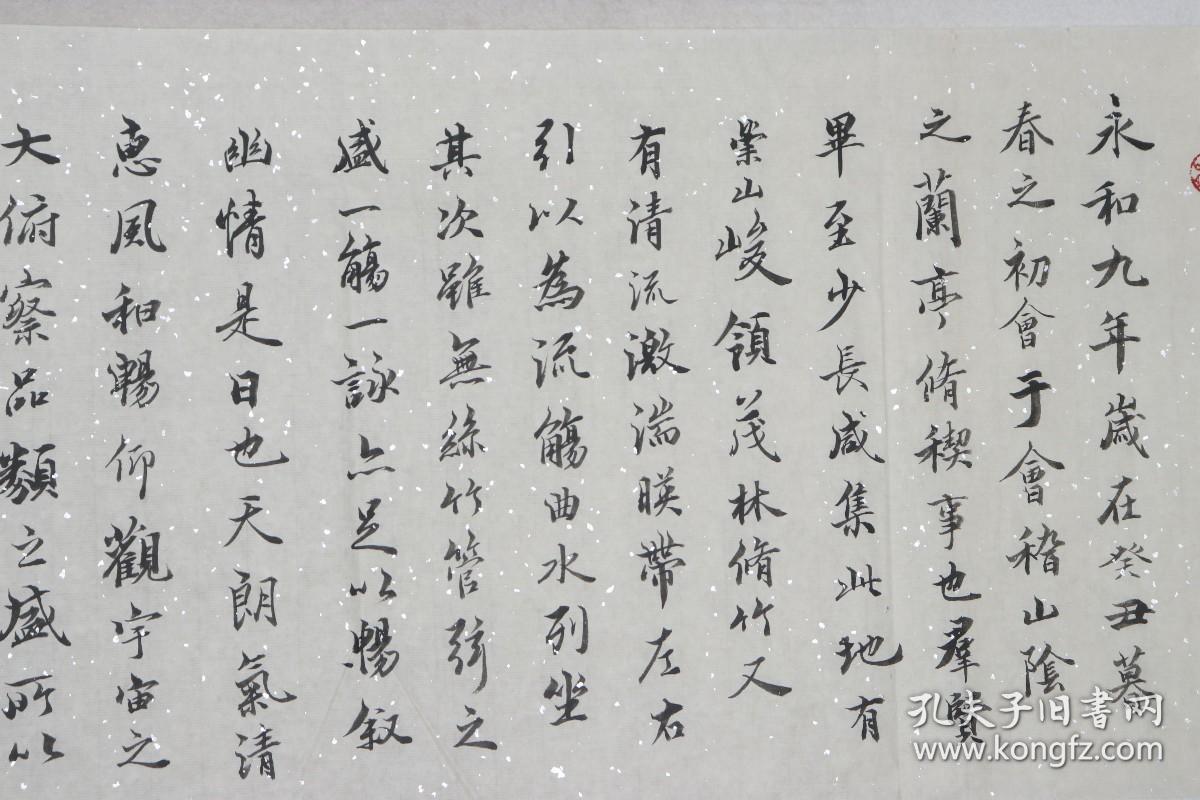 永和九年歲在癸丑暮
春之初會于會稽山陰
之蘭亭脩稧事也羣賢
畢至少長咸集此地有
崇山峻領茂林脩竹又
有清流激湍暎帶左右
引以為流觴曲水列坐
其次雖無絲竹管弦之
盛一觴一詠亦足以暢叙
幽情是日也天朗氣清
惠風和暢仰觀宇宙之
大俯察品類之盛所以
孔夫子旧书网
www.kongfz.com